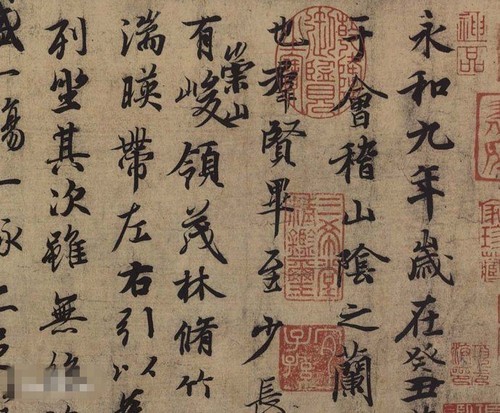 神品
永和九年歲在癸丑
于會稽山陰之蘭
也羣賢畢至少長
有崇山峻領茂林脩竹
湍暎帶左右引以
列坐其次雖無
盛一觴一詠
三希堂精鑑璽
宜子孫